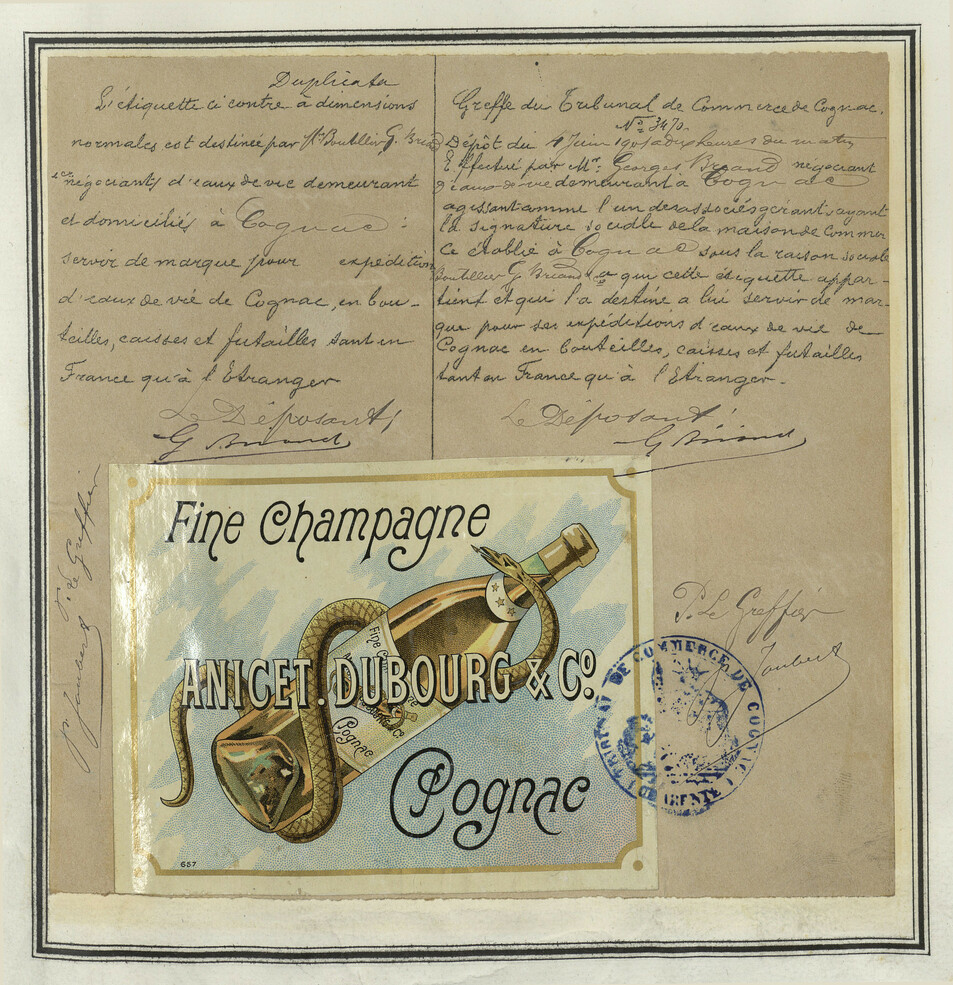 Duplicata
L'étiquette ci contre à dimensions
normales est destinée par Mrs Boutllier G. Briand
& Ce négociants d'eaux de vie demeurant
et domiciliés à Cognac :
servir de marque pour expédition
d'eaux de vie de Cognac, en bou-
teilles, caisses et futailles tant en
France qu'à l'Etranger
Le Déposant,
G Briand
Greffe du Tribunal de Commerce de Cognac.
No 3470
Dépôt du 4 Juin à dix heures du matin
Effectué par Mr. Georges Briand négociant
d'eaux-de-vie demeurant à Cognac
agissant comme l'un des associés gérant, ayant
la signature sociale de la maison de Commer
ce établie à Cognac sous la raison sociale
Boutllier G Briand & Ce a qui cette étiquette appar-
tient et qui l'a destine a lui servir de mar-
que pour ses expéditions d'eaux de vie de
Cognac en bouteilles, caisses et futailles
tant en France qu'à l'Etranger.
Le Déposant,
G Briand
P. le Greffier
Joubert
Fine Champagne
ANICET. DUBOURG & Co.
Cognac
Fine
Cognac
657
P. Le Greffier
Joubert
TRIBUNAL DE COMMERCE DE COGNAC
CHARENTE